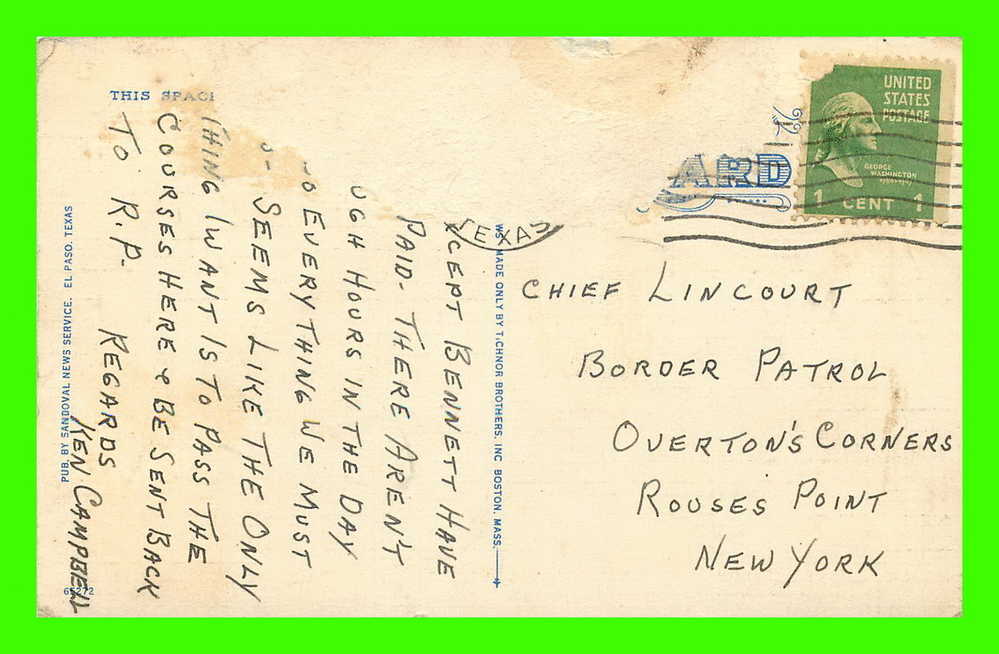 THIS SPACE
XCEPT BENNETT HAVE
PAID- THERE AREN'T
UGH HOURS IN THE DAY
O EVERYTHING WE MUST
O- SEEMS LIKE THE ONLY
THING I WANT IS TO PASS THE
COURSES HERE & BE SENT BACK
TO R.P. REGARDS
KEN CAMPBELL
PUB. BY SANDOVAL NEWS SERVICE. EL PASO. TEXAS
65272
MADE ONLY BY TICHNOR BROTHERS, INC BOSTON, MASS.
ARD
TEXAS
UNITED
STATES
POSTAGE
GEORGE
WASHINGTON
1789-1797
1 CENT 1
CHIEF LINCOURT
BORDER PATROL
OVERTON'S CORNERS
ROUSES POINT
NEW YORK